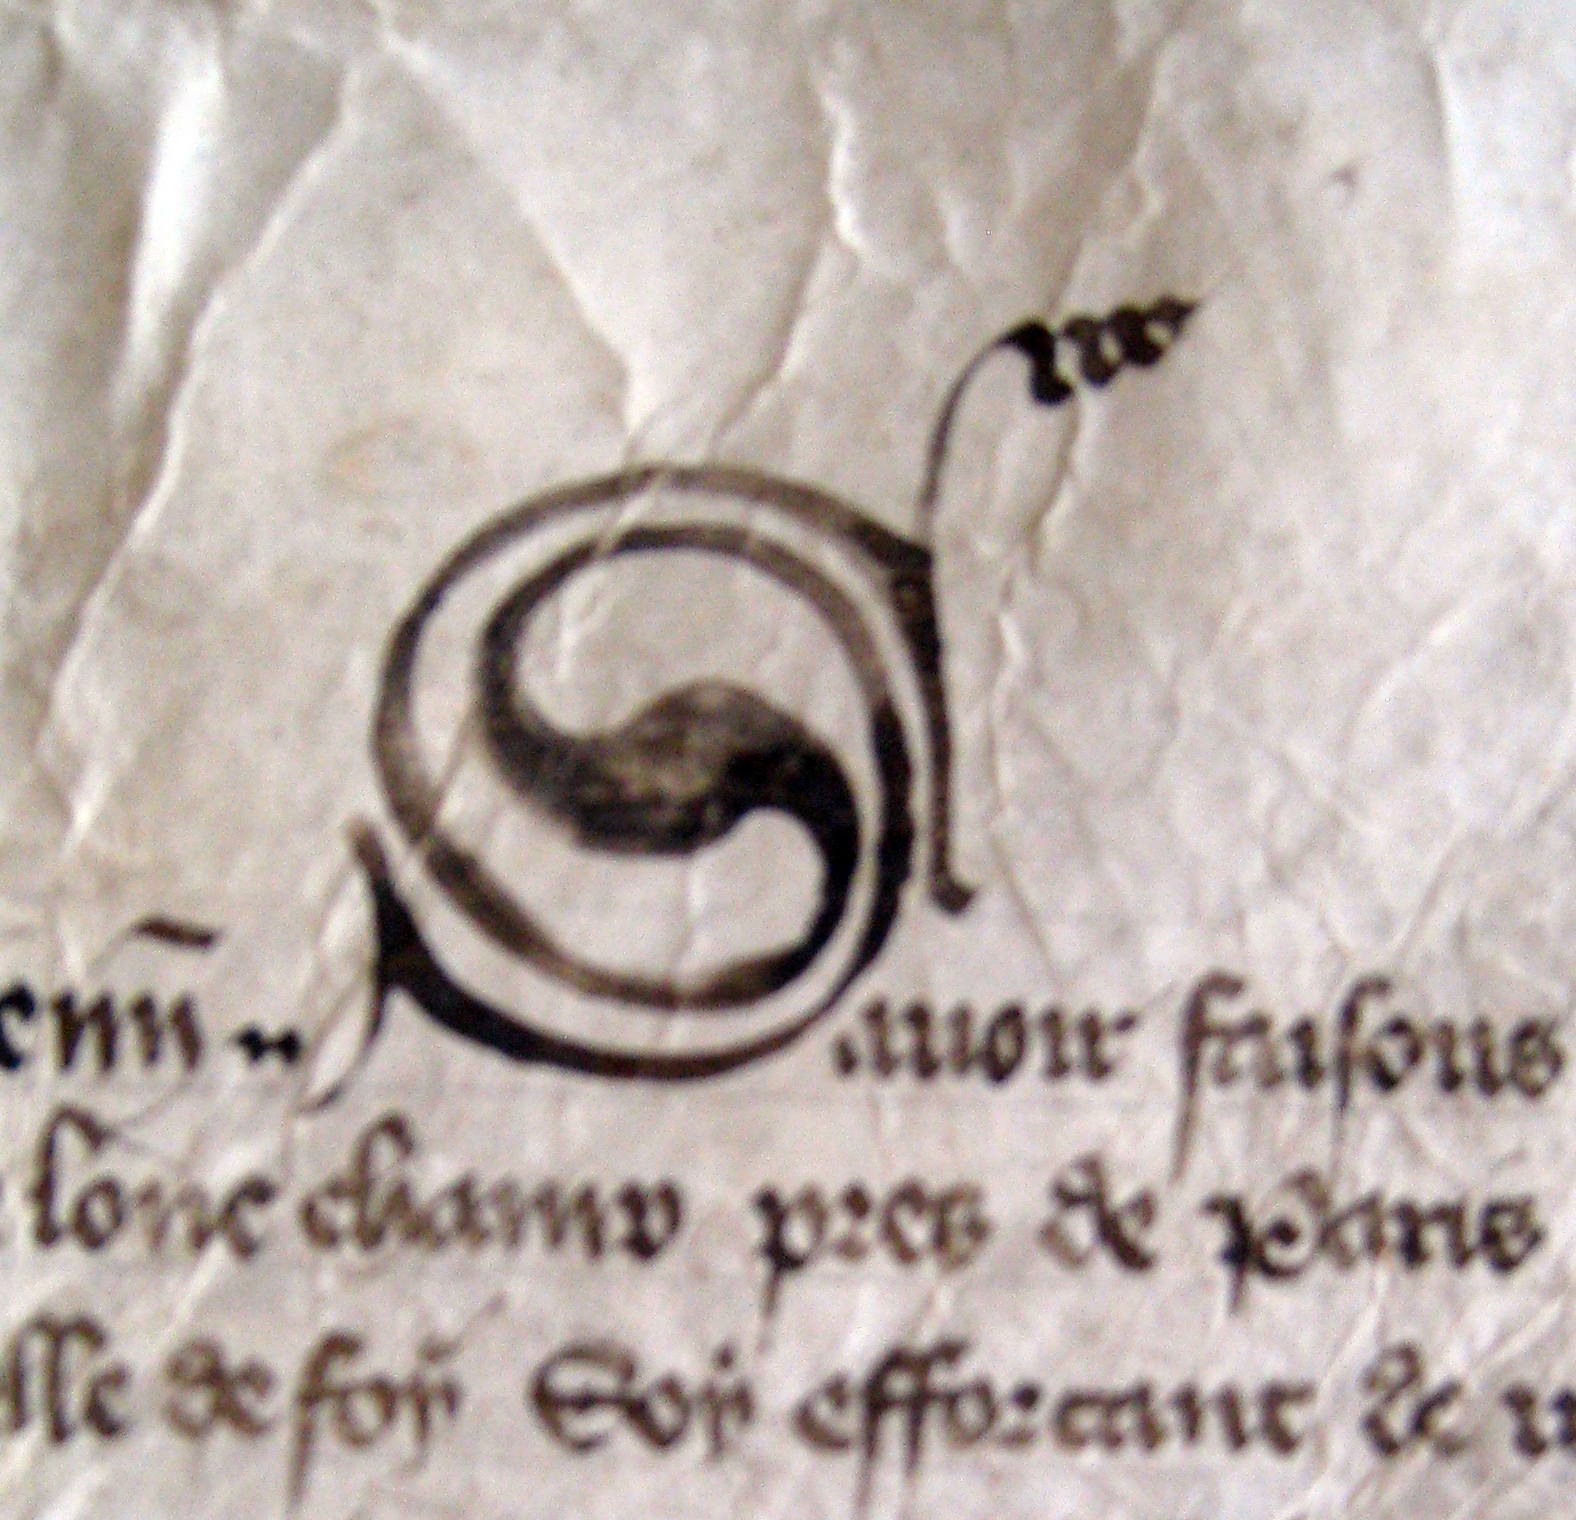 Sauoir faisons
lonc champ pres de paris
lle de foy Soy efforcant de